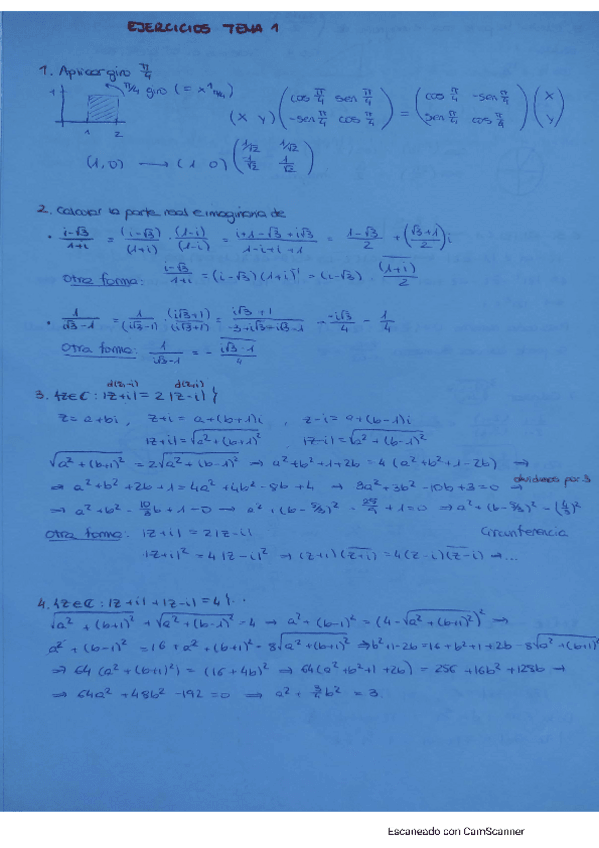 EJERCICIOS TEMA 1
1. Aplicar giro π/4
π/4 giro
1
1 2
(x y) (cos π/4 sen π/4 / -sen π/4 cos π/4) = (cos π/4 -sen π/4 / sen π/4 cos π/4) (x / y)
(1,0) → (1 0) (1/√2 1/√2 / 1/√2 1/√2)
2. Calcular la parte real e imaginaria de
• (i-√3)/(1+i) = (i-√3)/(1+i) · (1-i)/(1-i) = (i+1-√3+i√3)/(1-i+i+1) = (1-√3)/2 + ((√3+1)/2)i
Otra forma: (i-√3)/(1+i) = (i-√3)(1+i)⁻¹ = (i-√3) · \overline{(1+i)}/2
• 1/(i√3-1) = 1/(i√3-1) · (i√3+1)/(i√3+1) = (i√3+1)/(-3+i√3-i√3-1) = -i√3/4 - 1/4
Otra forma: 1/(i√3-1) = \overline{i√3-1}/4
d(z,-i) d(z,i)
3. {z∈ℂ: |z+i| = 2|z-i|}
z = a+bi, z+i = a+(b+1)i, z-i = a+(b-1)i
|z+i| = √(a²+(b+1)²) |z-i| = √(a²+(b-1)²)
√(a²+(b+1)²) = 2√(a²+(b-1)²) ⇒ a²+b²+1+2b = 4(a²+b²+1-2b) ⇒
⇒ a²+b²+2b+1 = 4a²+4b²-8b+4 ⇒ 3a²+3b²-10b+3=0 ⇒ dividimos por 3
⇒ a²+b²-10/3 b+1=0 ⇒ a²+(b-5/3)² - 25/9 + 1=0 ⇒ a²+(b-5/3)² = (4/3)²
Otra forma: |z+i| = 2|z-i| Circunferencia
|z+i|² = 4|z-i|² ⇒ (z+i)\overline{(z+i)} = 4(z-i)\overline{(z-i)} ⇒ ...
4. {z∈ℂ: |z+i|+|z-i|=4}
√(a²+(b+1)²) + √(a²+(b-1)²) = 4 ⇒ a²+(b-1)² = (4-√(a²+(b+1)²))² ⇒
a²+(b-1)² = 16+a²+(b+1)²-8√(a²+(b+1)²) ⇒ b²+1-2b = 16+b²+1+2b-8√(a²+(b+1)²)
⇒ 64(a²+(b+1)²) = (16+4b)² ⇒ 64(a²+b²+1+2b) = 256+16b²+128b ⇒
⇒ 64a²+48b²-192=0 ⇒ a²+3/4 b² = 3
Escaneado con CamScanner